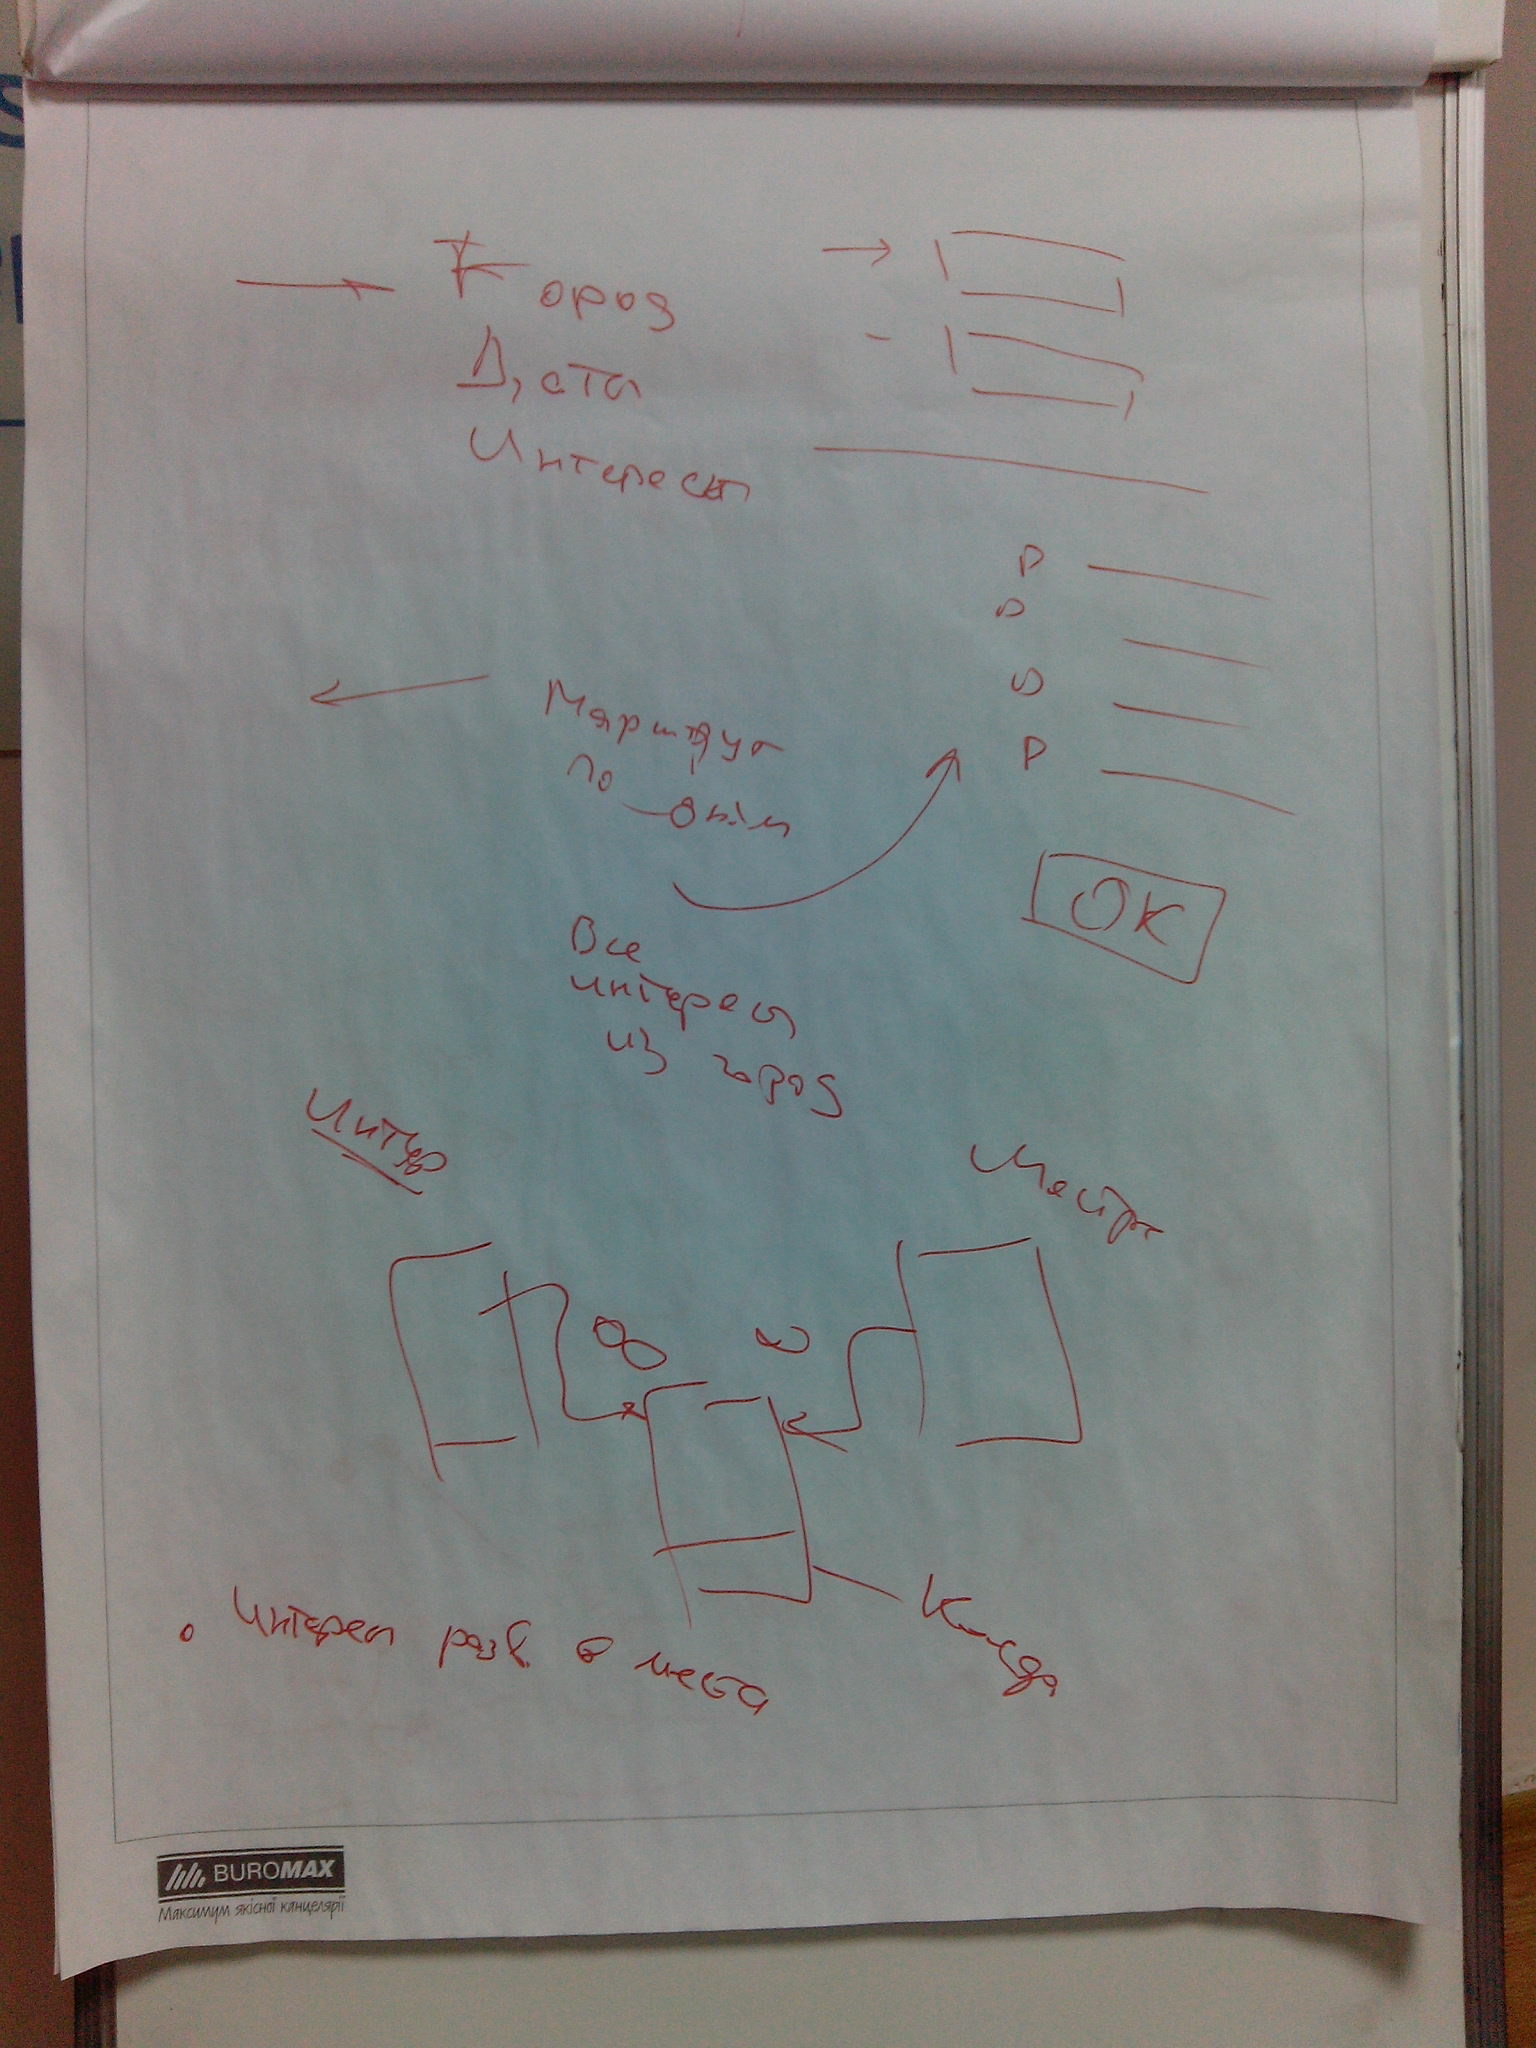 Город
Дата
Интересы
Маршрут
по дням
OK
Все
интересы
из города
Интер
Места
∞
∞
Интересы разб. в места
BUROMAX
Максимум якісної канцелярії